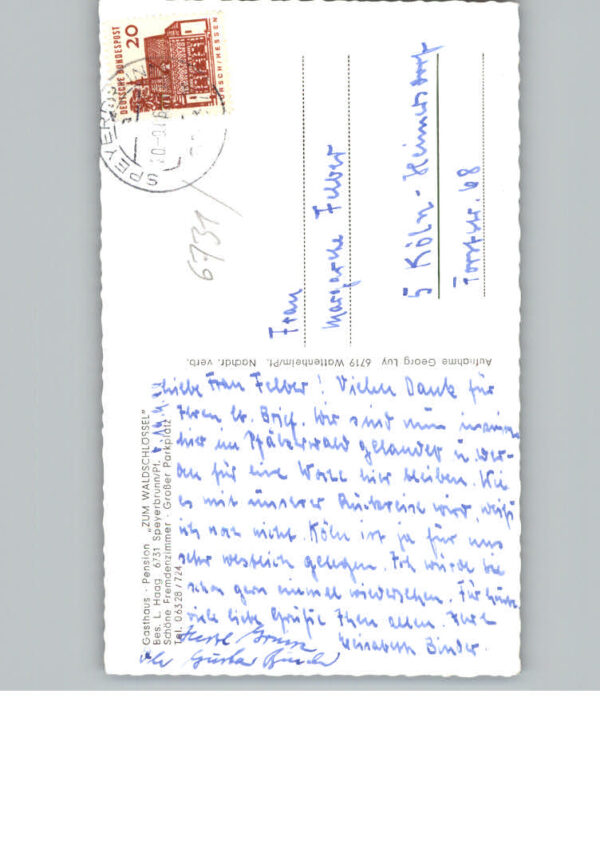 DEUTSCHE BUNDESPOST
20
LORSCH/HESSEN
SPEYER
6731
Frau
Margarethe Felber
5 Köln-Heimersdorf
Forststr. 68
Aufnahme Georg Luy 6719 Wattenheim/Pf. Nachdr. verb.
Gasthaus · Pension „ZUM WALDSCHLÖSSEL"
Bes. L. Haag 6731 Speyerbrunn/Pf.
Schöne Fremdenzimmer · Großer Parkplatz
Tel. 06328/724
Liebe Frau Felber! Vielen Dank für
Ihren lb. Brief. Wir sind nun
hier im Pfälzerwald gelandet u. wer-
den für eine Woche hier bleiben. Wie
es mit unserer Rückreise wird, weiß
ich noch nicht. Köln ist ja für uns
sehr westlich gelegen. Ich würde Sie
schon gern einmal wiedersehen. Für heute
viele liebe Grüße Ihnen allen. Ihre
Elisabeth Binder.
Herzl. Grüsse
Ihr Gustav Binder